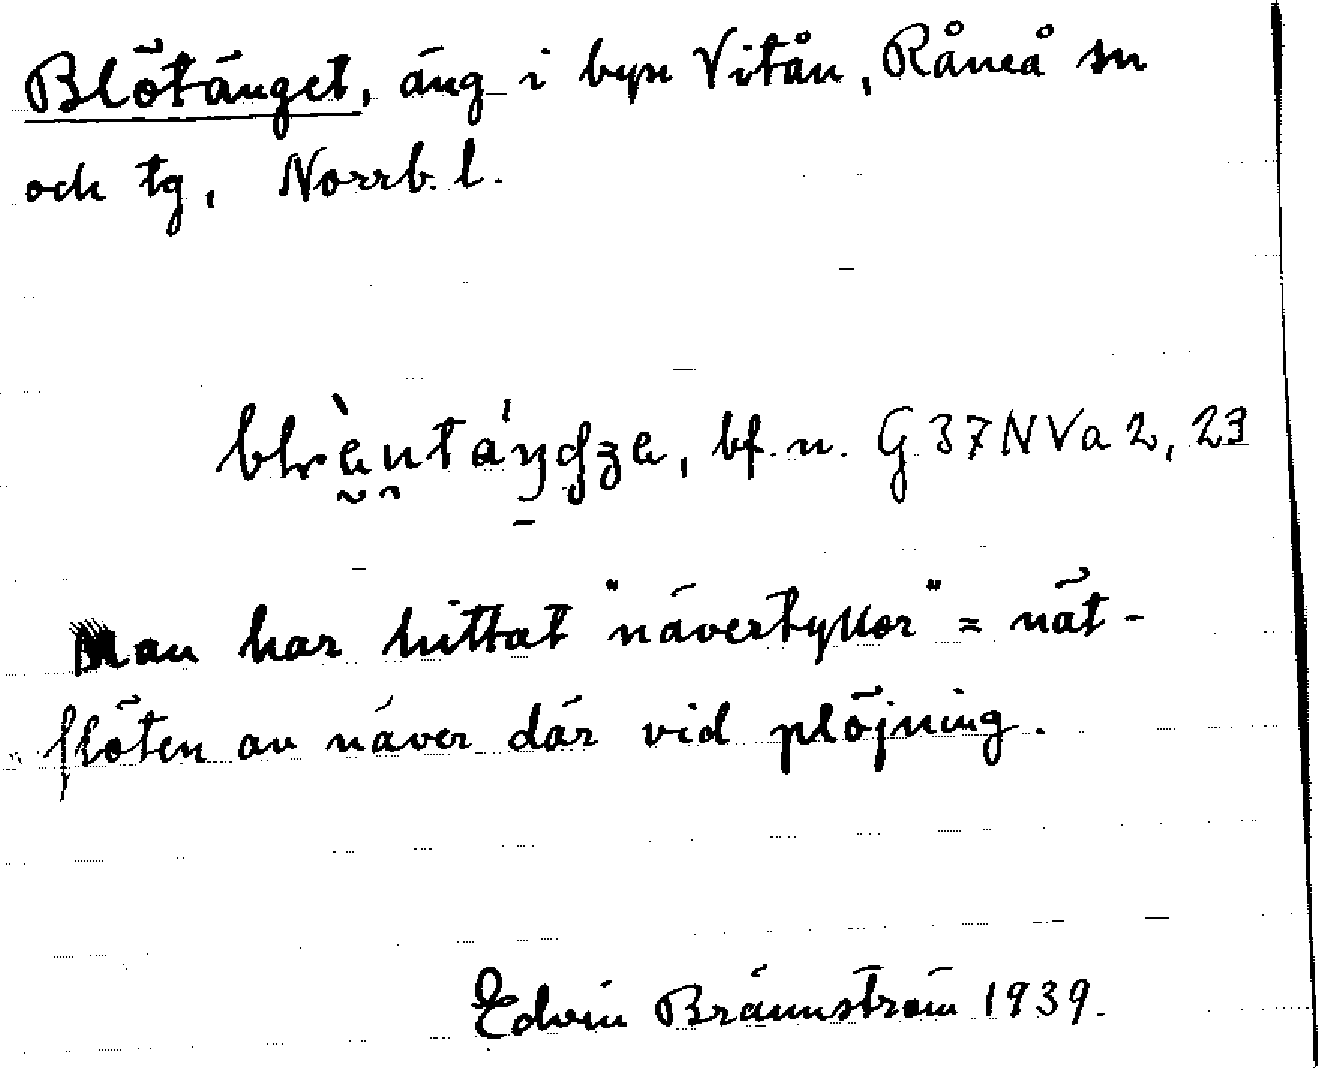 Blötänget, äng i byn Vitån, Råneå sn
och tg, Norrb. l.
bf. n. G 37 N Va 2, 23
Man har hittat "näverkyllor" = nät-
flöten av näver där vid plöjning.
Edvin Brännström 1939.